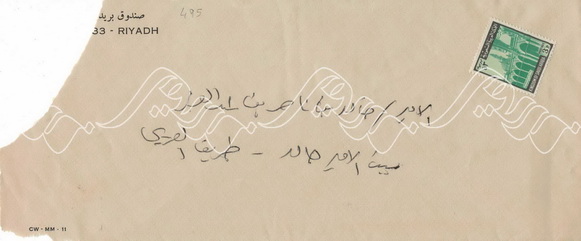 صندوق بريد
33 - RIYADH
495
الامير / خالد بن ناصر بن عبدالعزيز
بيت الامير خالد - طريق
CW - MM - 11